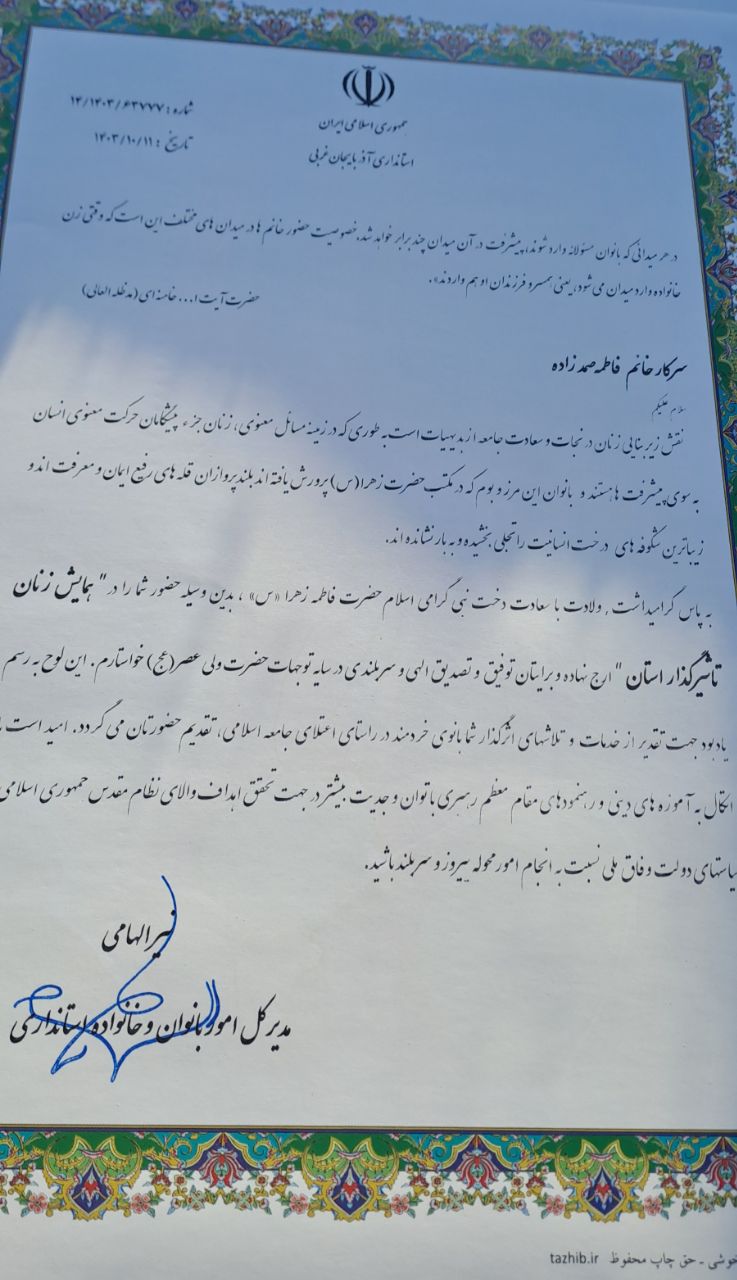 شماره: ۱۴/۱۴۰۳/۶۳۷۷۷
تاریخ: ۱۴۰۳/۱۰/۱۱
جمهوری اسلامی ایران
استانداری آذربایجان غربی
در هر میدانی که بانوان مسئولانه وارد شوند، پیشرفت در آن میدان چند برابر خواهد شد. خصوصیت حضور خانم ها در میدان های مختلف این است که وقتی زن
خانواده وارد میدان می شود، یعنی همسر و فرزندان او هم واردند».
حضرت آیت ا... خامنه ای (مدظله العالی)
سرکار خانم فاطمه صمدزاده
سلام علیکم
نقش زیربنایی زنان در نجات و سعادت جامعه از بدیهیات است به طوری که در زمینه مسائل معنوی، زنان جزء پیشگامان حرکت معنوی انسان
به سوی پیشرفت ها هستند و بانوان این مرز و بوم که در مکتب حضرت زهرا (س) پرورش یافته اند بلندپروازان قله های رفیع ایمان و معرفت اند و
زیباترین شکوفه های درخت انسانیت را تجلی بخشیده و به بار نشانده اند.
به پاس گرامیداشت , ولادت با سعادت دخت نبی گرامی اسلام حضرت فاطمه زهرا «س» ، بدین وسیله حضور شما را در " همایش زنان
تاثیرگذار استان " ارج نهاده و برایتان توفیق و تصدیق الهی و سربلندی در سایه توجهات حضرت ولی عصر (عج) خواستارم. این لوح به رسم
یادبود جهت تقدیر از خدمات و تلاشهای اثرگذار شما بانوی خردمند در راستای اعتلای جامعه اسلامی، تقدیم حضورتان می گردد. امید است
اتکال به آموزه های دینی و رهنمودهای مقام معظم رهبری با توان و جدیت بیشتر در جهت تحقق اهداف والای نظام مقدس جمهوری اسلامی
سیاستهای دولت وفاق ملی نسبت به انجام امور محوله پیروز و سربلند باشید.
الهامی
مدیرکل امور بانوان و خانواده استانداری
خوشی - حق چاپ محفوظ tazhib.ir